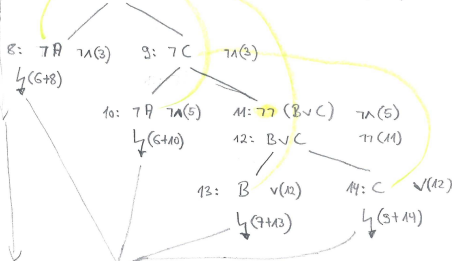 8: ¬A ¬∧(3) 9: ¬C ¬∧(3)
↯(6+8)
10: ¬A ¬∧(5) 11: ¬¬(B∨C) ¬∧(5)
↯(6+10) 12: B∨C ¬¬(11)
13: B ∨(12) 14: C ∨(12)
↯(7+13) ↯(9+14)